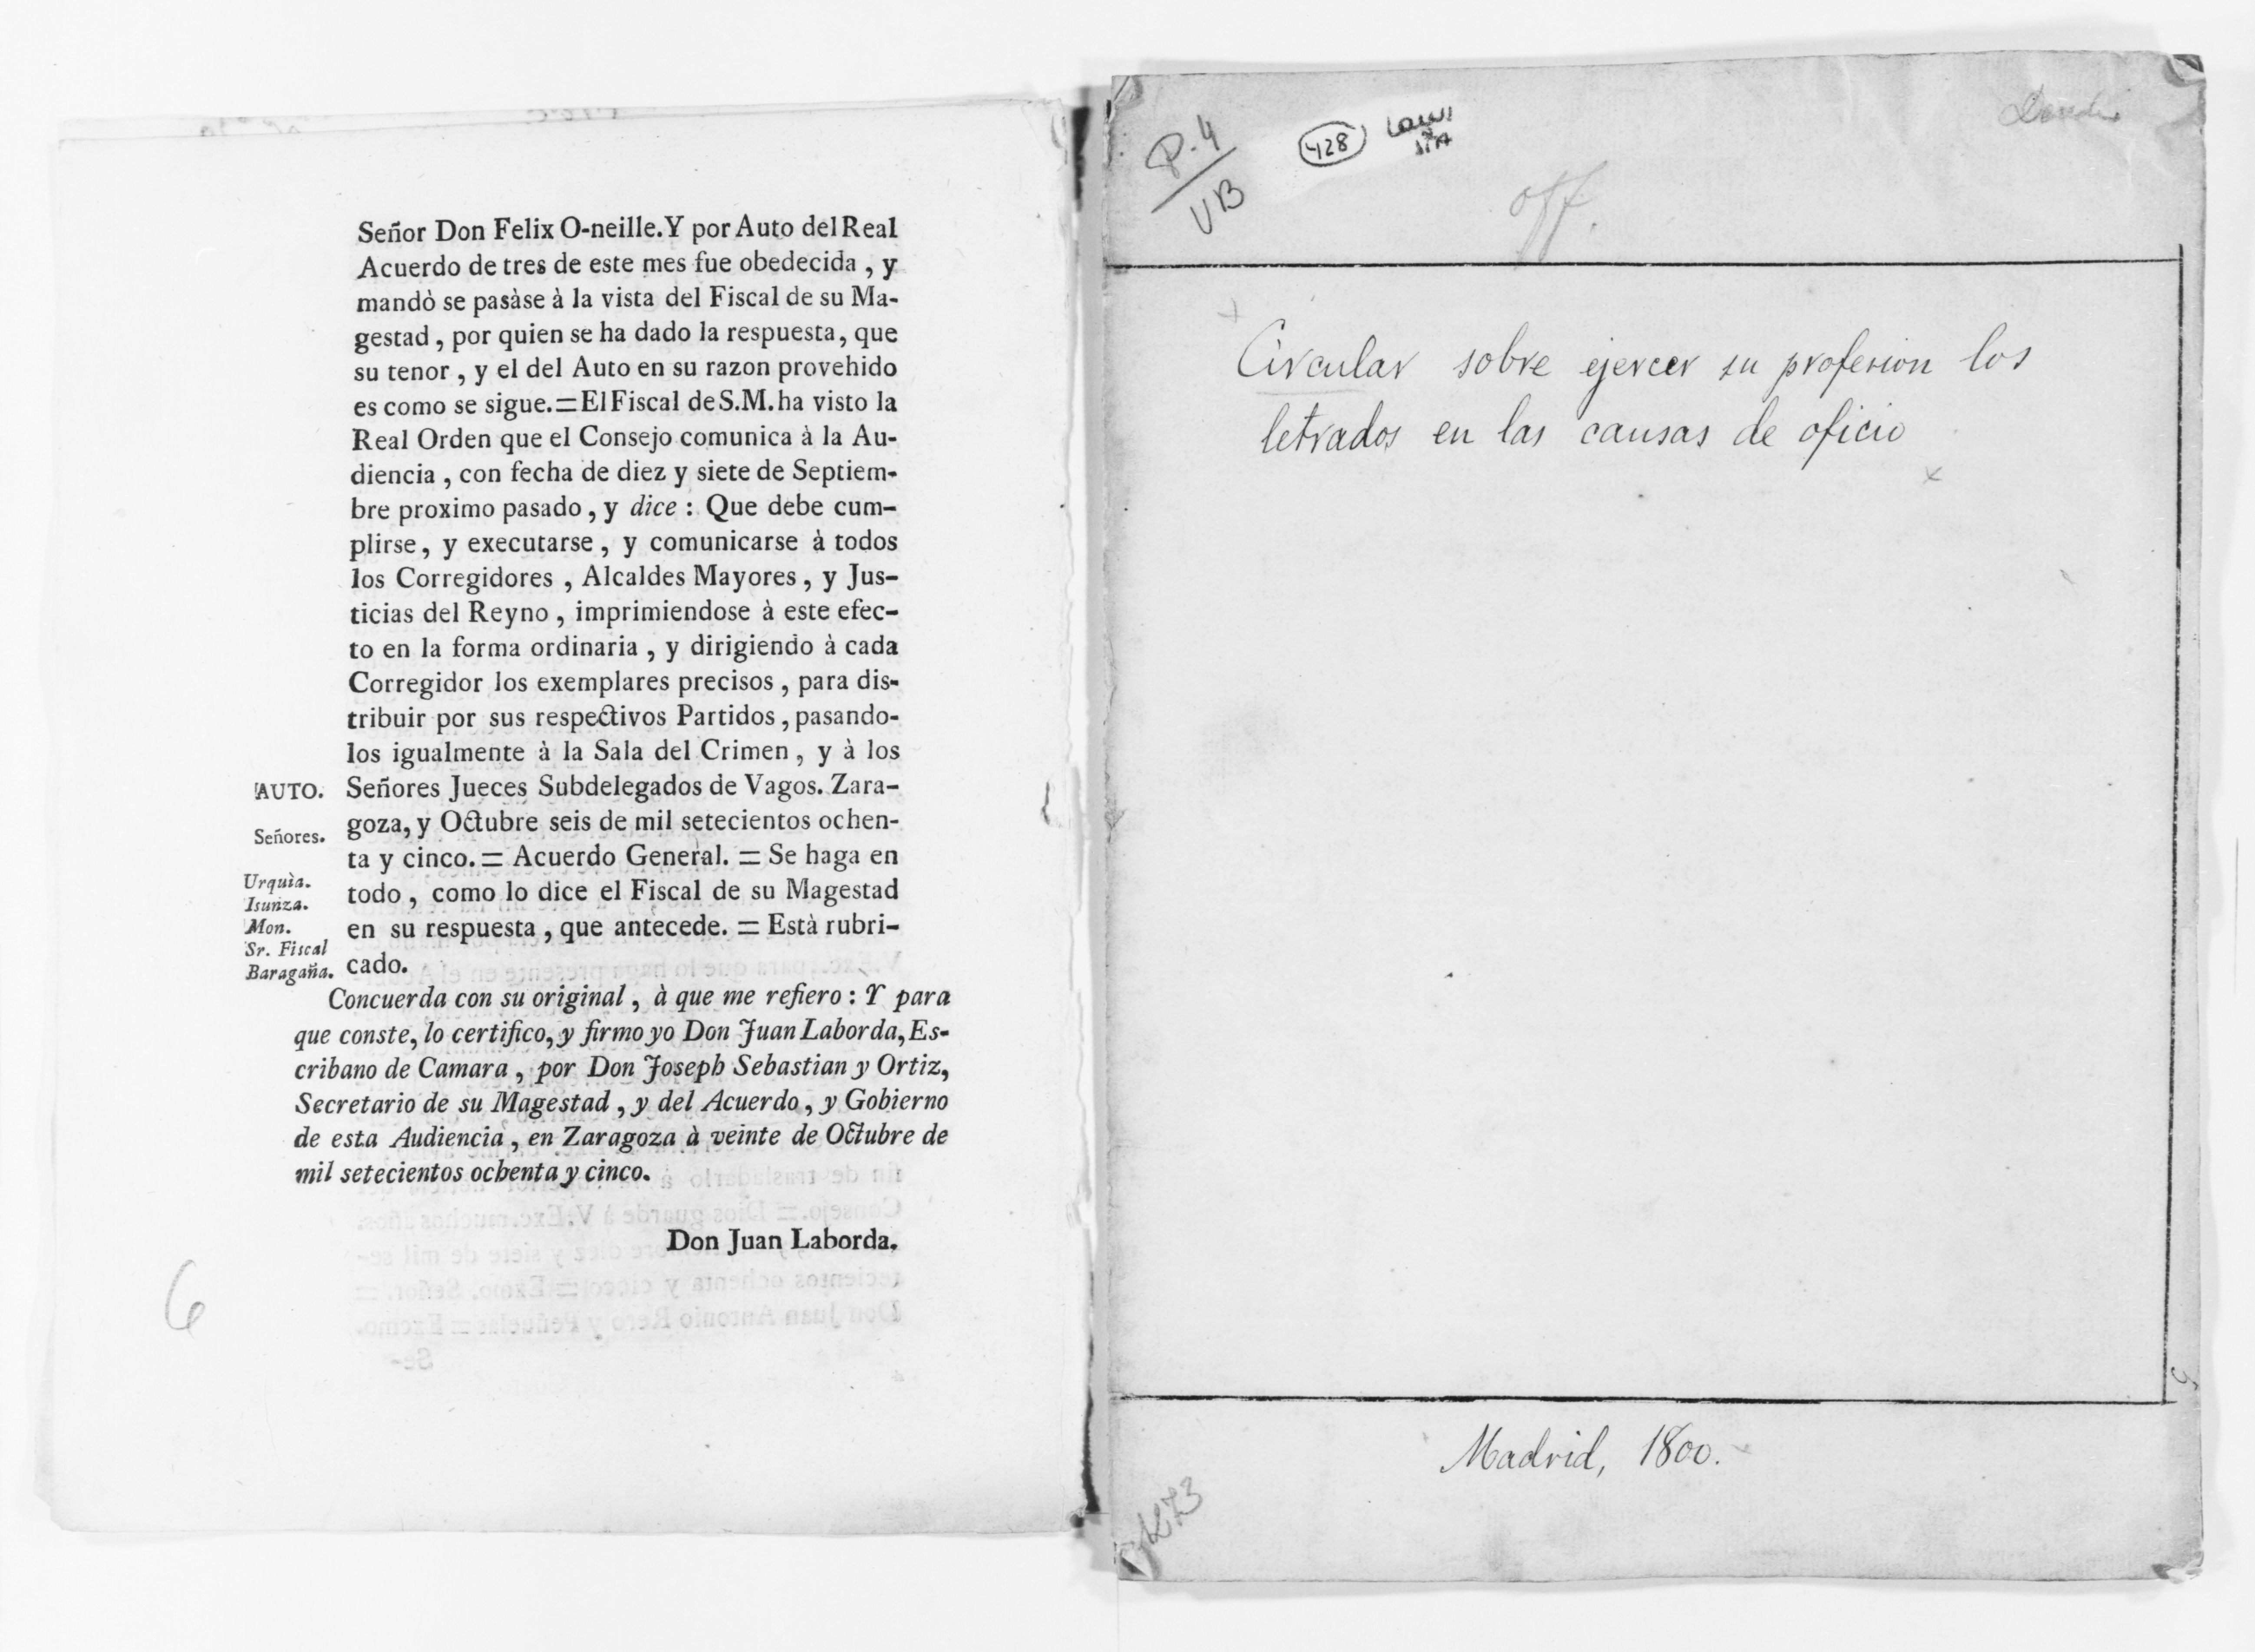 Señor Don Felix O-neille. Y por Auto del Real
Acuerdo de tres de este mes fue obedecida , y
mandò se pasàse à la vista del Fiscal de su Ma-
gestad , por quien se ha dado la respuesta, que
su tenor , y el del Auto en su razon provehido
es como se sigue.=El Fiscal de S.M. ha visto la
Real Orden que el Consejo comunica à la Au-
diencia , con fecha de diez y siete de Septiem-
bre proximo pasado , y dice : Que debe cum-
plirse , y executarse , y comunicarse à todos
los Corregidores , Alcaldes Mayores , y Jus-
ticias del Reyno , imprimiendose à este efec-
to en la forma ordinaria , y dirigiendo à cada
Corregidor los exemplares precisos , para dis-
tribuir por sus respectivos Partidos , pasando-
los igualmente à la Sala del Crimen , y à los
Señores Jueces Subdelegados de Vagos. Zara-
goza, y Octubre seis de mil setecientos ochen-
ta y cinco. = Acuerdo General. = Se haga en
todo , como lo dice el Fiscal de su Magestad
en su respuesta , que antecede. = Està rubri-
cado.
AUTO.
Señores.
Urquìa.
Isunza.
Mon.
Sr. Fiscal
Baragaña.
Concuerda con su original , à que me refiero : Y para
que conste, lo certifico, y firmo yo Don Juan Laborda, Es-
cribano de Camara , por Don Joseph Sebastian y Ortiz,
Secretario de su Magestad , y del Acuerdo , y Gobierno
de esta Audiencia , en Zaragoza à veinte de Octubre de
mil setecientos ochenta y cinco.
Don Juan Laborda.
6
P-4
VB
428
off.
Circular sobre ejercer su profesion los
letrados en las causas de oficio
Madrid, 1800.